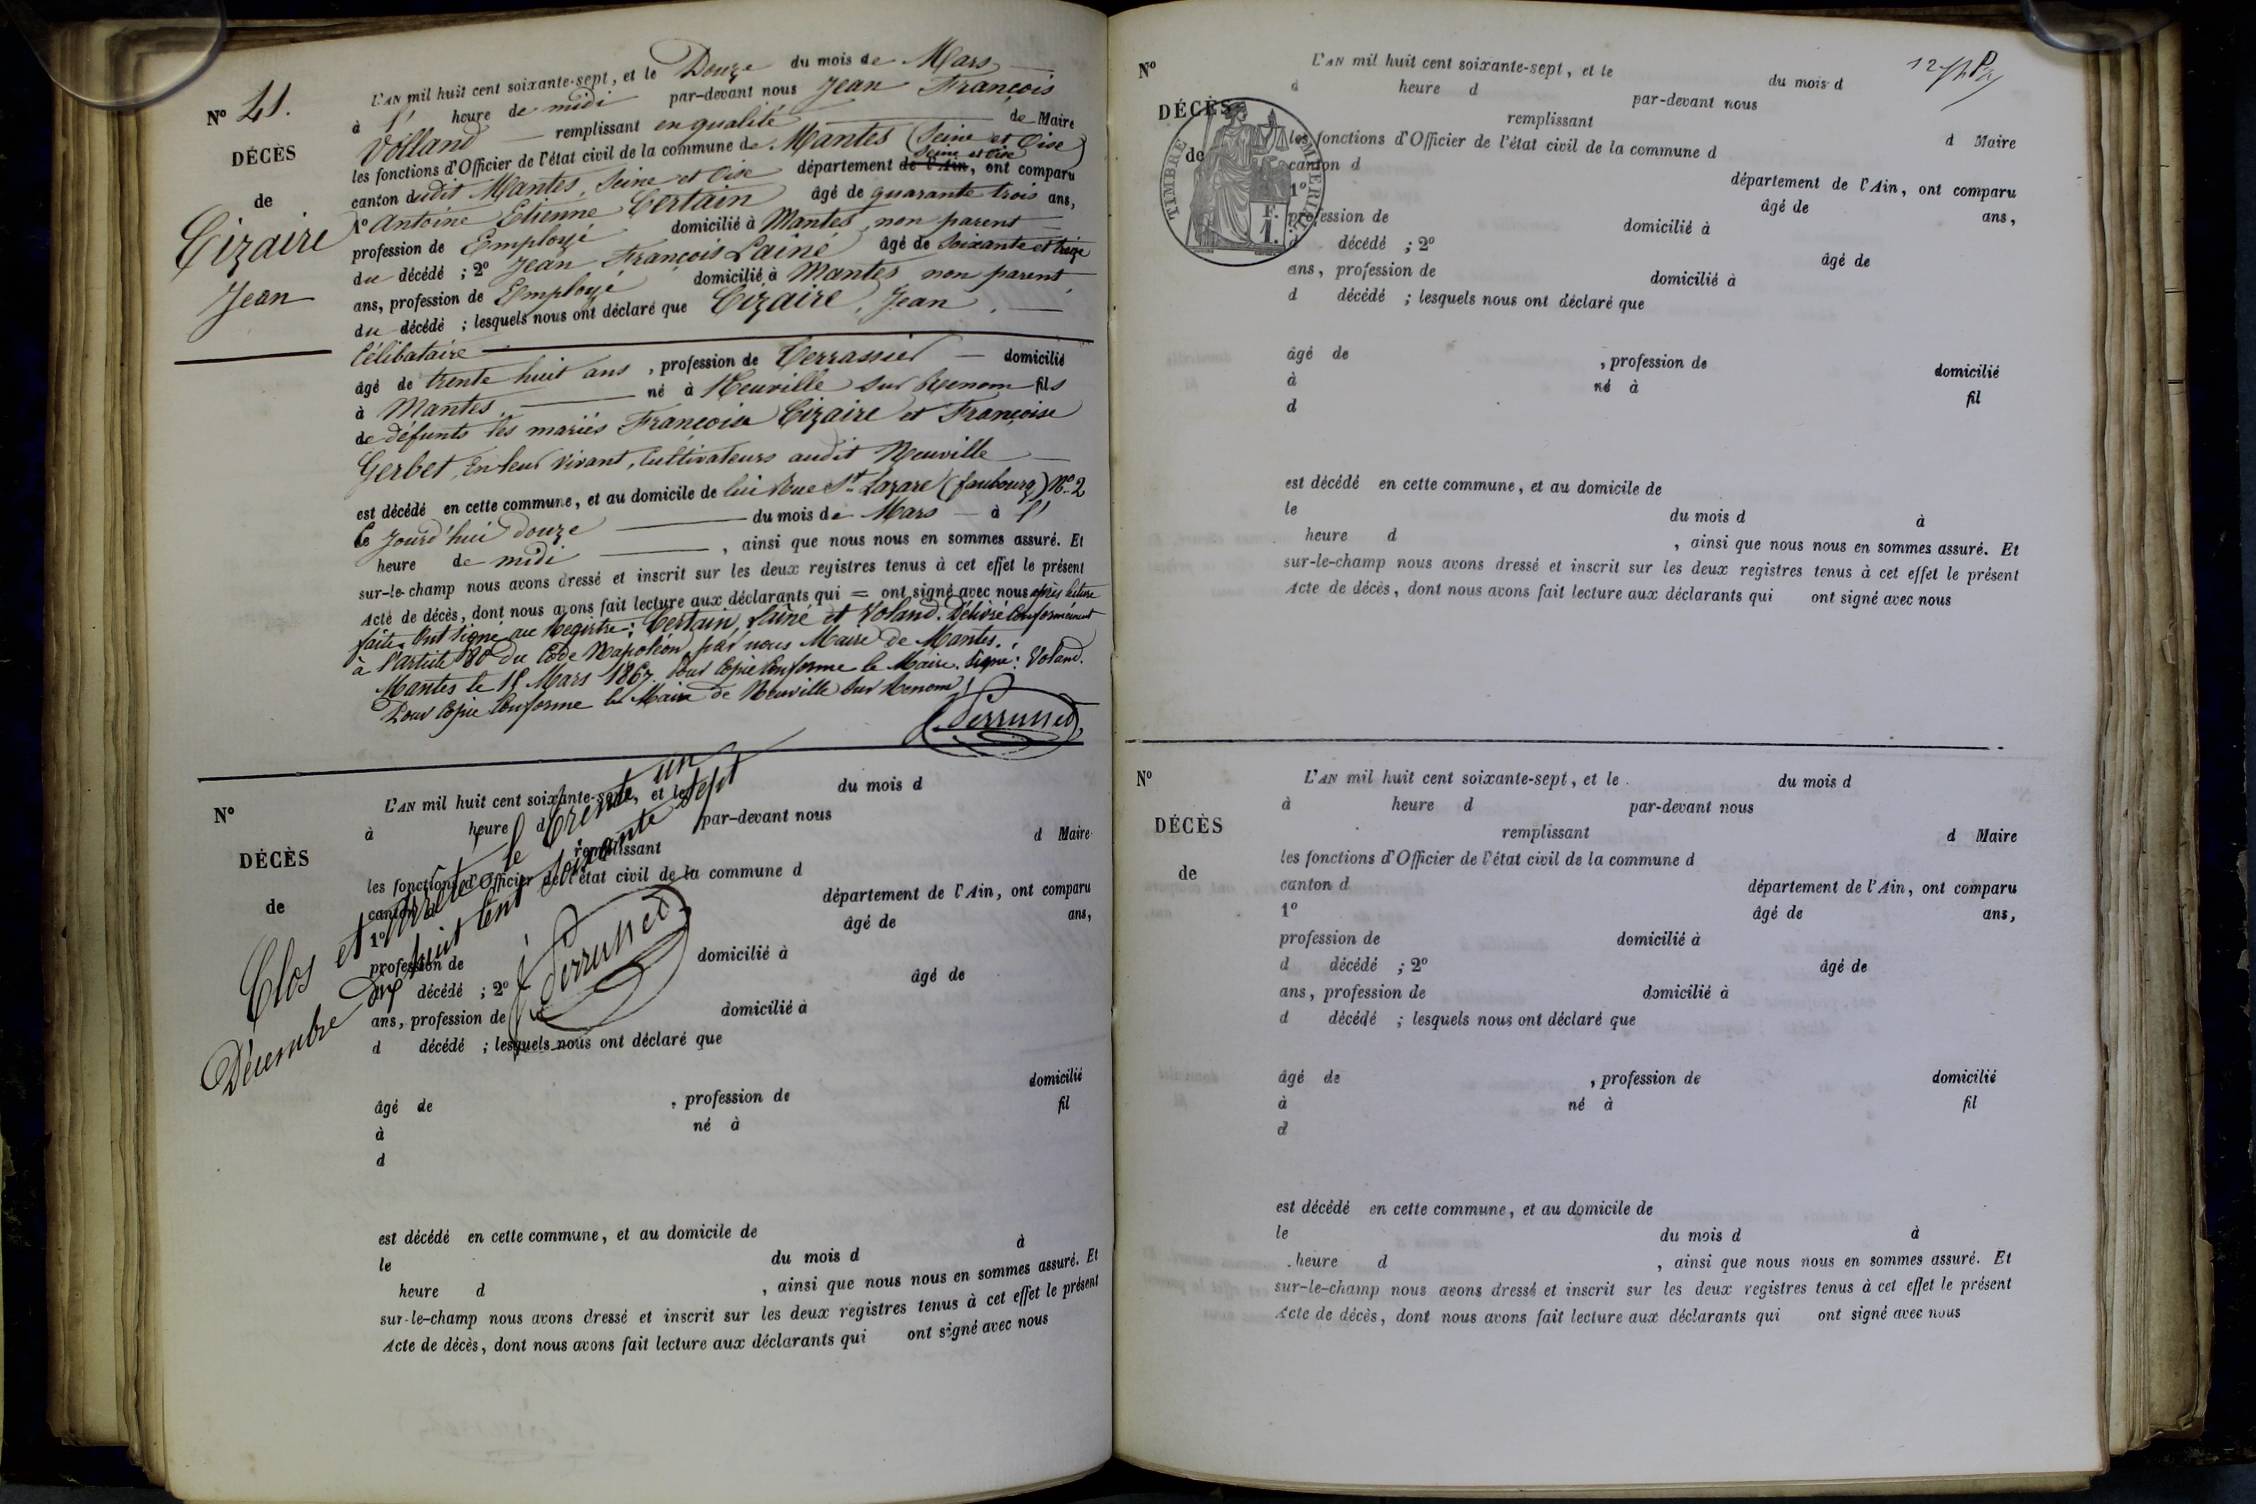 L'AN mil huit cent soixante-sept, et le Douze du mois de Mars
à 1 heure de midi par-devant nous Jean François
Volland remplissant en qualité de Maire
les fonctions d'Officier de l'état civil de la commune de Mantes (Seine et Oise)
Seine et Oise
canton dudit Mantes, Seine et Oise département de l'Ain, ont comparu
1º Antoine Etienne Certain âgé de quarante trois ans,
profession de Employé domicilié à Mantes, non parent
du décédé ; 2º Jean François Lainé âgé de soixante et treize
ans, profession de Employé domicilié à Mantes, non parent
du décédé ; lesquels nous ont déclaré que Cizaire, Jean,
Célibataire
âgé de trente huit ans, profession de Terrassier domicilié
à Mantes, né à Neuville sur Renom fils
de défunts les mariés François Cizaire et Françoise
Gerbet, en leur vivant, Cultivateurs audit Neuville
est décédé en cette commune, et au domicile de lui Rue St Lazare (faubourg) Nº 2
le jourd'hui douze du mois de Mars à 1
heure de midi, ainsi que nous nous en sommes assuré. Et
sur-le-champ nous avons dressé et inscrit sur les deux registres tenus à cet effet le présent
Acte de décès, dont nous avons fait lecture aux déclarants qui = ont signé avec nous après lecture
faite. Ont signé au Registre : Certain, Lainé et Voland. Délivré Conformément
à l'article 80 du Code Napoléon, par nous Maire de Mantes.
Mantes le 15 Mars 1867. Pour Copie Conforme le Maire. Signé : Voland.
Pour Copie Conforme le Maire de Neuville sur Renom
Perruned
Nº 41.
DÉCÈS
de
Cizaire
Jean
Nº
DÉCÈS
de
L'AN mil huit cent soixante-sept, et le du mois d
à heure d par-devant nous
remplissant d Maire
les fonctions d'Officier de l'état civil de la commune d
canton d département de l'Ain, ont comparu
1º âgé de ans,
profession de domicilié à
d décédé ; 2º âgé de
ans, profession de domicilié à
d décédé ; lesquels nous ont déclaré que
âgé de , profession de domicilié
à né à fil
d
est décédé en cette commune, et au domicile de
le du mois d à
heure d , ainsi que nous nous en sommes assuré. Et
sur-le-champ nous avons dressé et inscrit sur les deux registres tenus à cet effet le présent
Acte de décès, dont nous avons fait lecture aux déclarants qui ont signé avec nous
Clos et Arrêté le trente un
Décembre Dix huit Cent soixante sept
Perruned
Nº
DÉCÈS
de
TIMBRE IMPERIAL
F.
1.
L'AN mil huit cent soixante-sept, et le du mois d
à heure d par-devant nous
remplissant d Maire
les fonctions d'Officier de l'état civil de la commune d
canton d département de l'Ain, ont comparu
1º âgé de ans,
profession de domicilié à
d décédé ; 2º âgé de
ans, profession de domicilié à
d décédé ; lesquels nous ont déclaré que
âgé de , profession de domicilié
à né à fil
d
est décédé en cette commune, et au domicile de
le du mois d à
heure d , ainsi que nous nous en sommes assuré. Et
sur-le-champ nous avons dressé et inscrit sur les deux registres tenus à cet effet le présent
Acte de décès, dont nous avons fait lecture aux déclarants qui ont signé avec nous
Nº
DÉCÈS
de
L'AN mil huit cent soixante-sept, et le du mois d
à heure d par-devant nous
remplissant d Maire
les fonctions d'Officier de l'état civil de la commune d
canton d département de l'Ain, ont comparu
1º âgé de ans,
profession de domicilié à
d décédé ; 2º âgé de
ans, profession de domicilié à
d décédé ; lesquels nous ont déclaré que
âgé de , profession de domicilié
à né à fil
d
est décédé en cette commune, et au domicile de
le du mois d à
heure d , ainsi que nous nous en sommes assuré. Et
sur-le-champ nous avons dressé et inscrit sur les deux registres tenus à cet effet le présent
Acte de décès, dont nous avons fait lecture aux déclarants qui ont signé avec nous